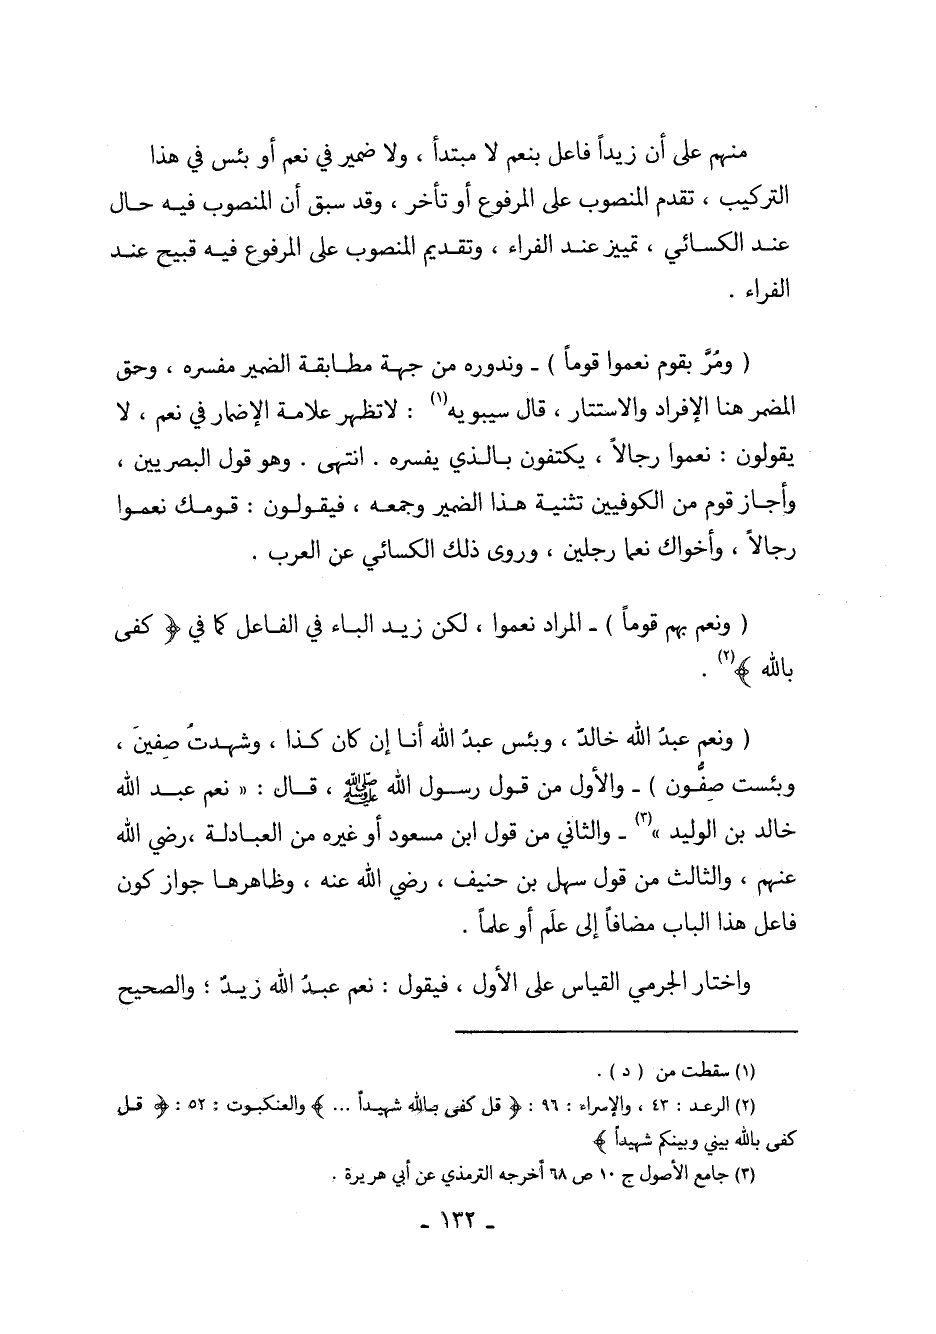 منهم على أن زيداً فاعل بنعم لا مبتدأ ، ولا ضمير في نعم أو بئس في هذا
التركيب ، تقدم المنصوب على المرفوع أو تأخر ، وقد سبق أن المنصوب فيه حال
عند الكسائي ، تمييز عند الفراء ، وتقديم المنصوب على المرفوع فيه قبيح عند
الفراء .
( ومُرَّ بقوم نعموا قوماً ) ـ وندوره من جهة مطابقة الضمير مفسره ، وحق
المضمر هنا الإفراد والاستتار ، قال سيبويه(١) : لاتظهر علامة الإضمار في نعم ، لا
يقولون : نعموا رجالاً ، يكتفون بالذي يفسره . انتهى . وهو قول البصريين ،
وأجاز قوم من الكوفيين تثنية هذا الضمير وجمعه ، فيقولون : قومك نعموا
رجالاً ، وأخواك نعما رجلين ، وروى ذلك الكسائي عن العرب .
( ونعم بهم قوماً ) ـ المراد نعموا ، لكن زيد الباء في الفاعل كما في ﴿ كفى
بالله ﴾(٢) .
( ونعم عبدُ الله خالدٌ ، وبئس عبدُ الله أنا إن كان كذا ، وشهدتُ صفينَ ،
وبئست صِفُّون ) ـ والأول من قول رسول الله ﷺ ، قال : « نعم عبد الله
خالد بن الوليد »(٣) ـ والثاني من قول ابن مسعود أو غيره من العبادلة ،رضي الله
عنهم ، والثالث من قول سهل بن حنيف ، رضي الله عنه ، وظاهرها جواز كون
فاعل هذا الباب مضافاً إلى علَم أو علماً .
واختار الجرمي القياس على الأول ، فيقول : نعم عبدُ الله زيدٌ ؛ والصحيح
(١) سقطت من ( د ) .
(٢) الرعد : ٤٣ ، والإسراء : ٩٦ : ﴿ قل كفى بالله شهيداً ... ﴾ والعنكبوت : ٥٢ : ﴿ قل
كفى بالله بيني وبينكم شهيداً ﴾
(٣) جامع الأصول ج ١٠ ص ٦٨ أخرجه الترمذي عن أبي هريرة .
ـ ١٣٢ ـ